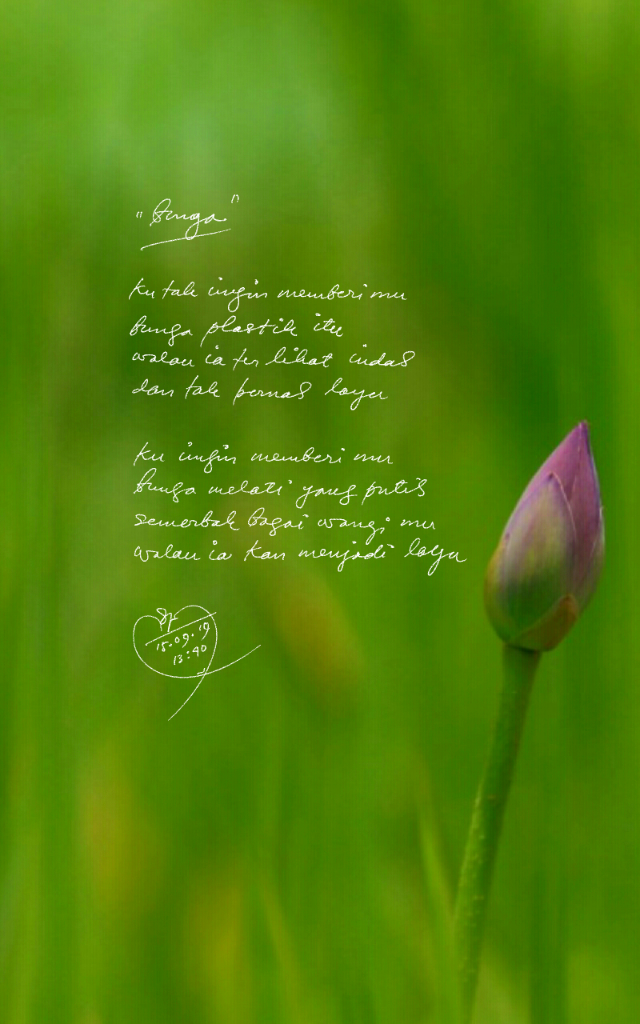 "Bunga"
Ku tak ingin memberi mu
bunga plastik itu
walau ia ter lihat indah
dan tak pernah layu
Ku ingin memberi mu
bunga melati yang putih
semerbak bagai wangi mu
walau ia kan menjadi layu
15.09.19
13:40